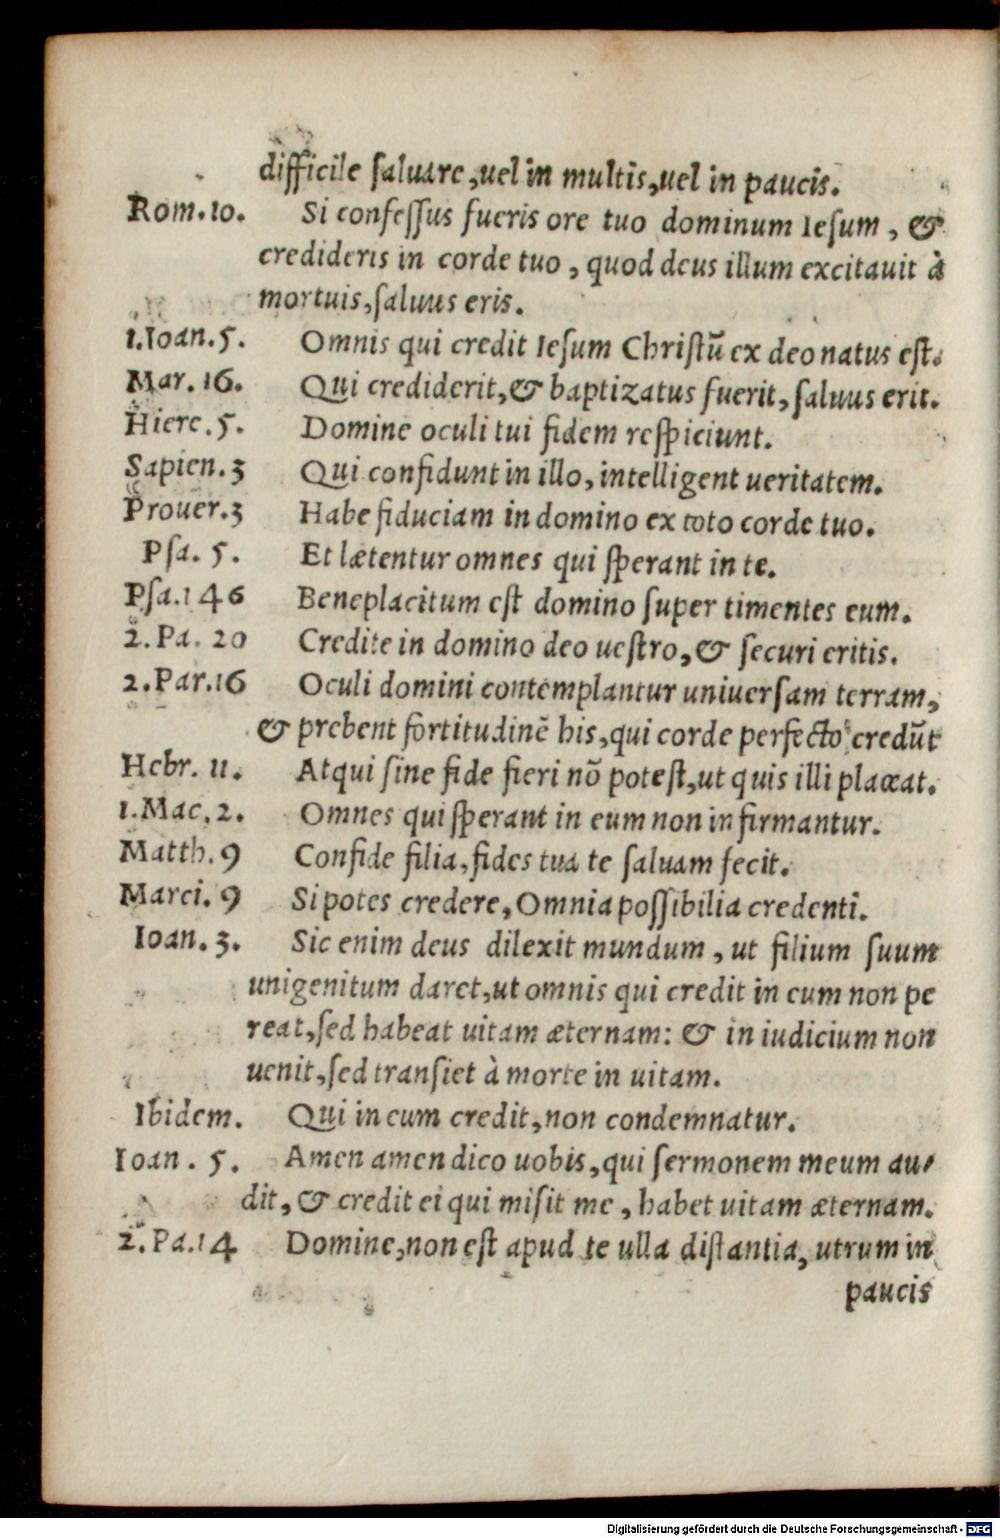 difficile saluare, uel in multis, uel in paucis.
Rom.10. Si confessus fueris ore tuo dominum Iesum, &
credideris in corde tuo, quod deus illum excitauit à
mortuis, saluus eris.
1.Ioan.5. Omnis qui credit Iesum Christū ex deo natus est.
Mar.16. Qui crediderit, & baptizatus fuerit, saluus erit.
Hiere.5. Domine oculi tui fidem respiciunt.
Sapien.3 Qui confidunt in illo, intelligent ueritatem.
Prouer.3 Habe fiduciam in domino ex toto corde tuo.
Psa. 5. Et lætentur omnes qui sperant in te.
Psa.146 Beneplacitum est domino super timentes eum.
2.Pa. 20 Credite in domino deo uestro, & securi eritis.
2.Par.16 Oculi domini contemplantur uniuersam terram,
& prebent fortitudinē his, qui corde perfecto credūt
Hebr. 11. Atqui sine fide fieri nō potest, ut quis illi placeat.
1.Mac.2. Omnes qui sperant in eum non infirmantur.
Matth.9 Confide filia, fides tua te saluam fecit.
Marci.9 Si potes credere, Omnia possibilia credenti.
Ioan.3. Sic enim deus dilexit mundum, ut filium suum
unigenitum daret, ut omnis qui credit in eum non pe
reat, sed habeat uitam æternam: & in iudicium non
uenit, sed transiet à morte in uitam.
Ibidem. Qui in eum credit, non condemnatur.
Ioan. 5. Amen amen dico uobis, qui sermonem meum au-
dit, & credit ei qui misit me, habet uitam æternam.
2.Pa.14 Domine, non est apud te ulla distantia, utrum in
paucis
Digitalisierung gefördert durch die Deutsche Forschungsgemeinschaft - DFG